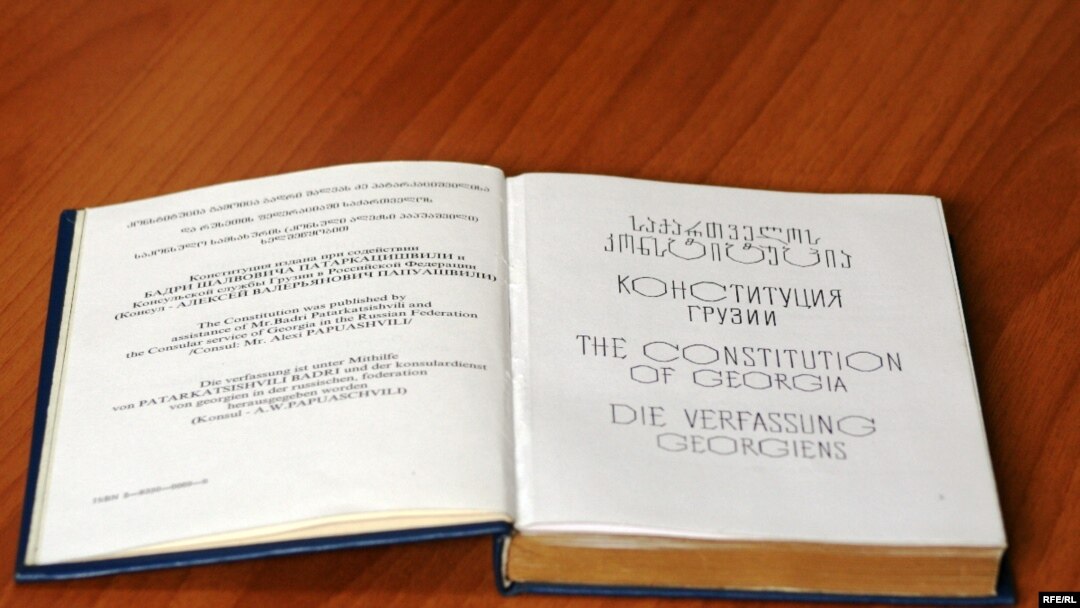 კონსტიტუცია გამოიცა ბადრი შალვას ძე პატარკაციშვილისა
და რუსეთის ფედერაციაში საქართველოს
საკონსულო სამსახურის (კონსული ალექსი პაპუაშვილი)
ხელშეწყობით
Конституция издана при содействии
БАДРИ ШАЛВОВИЧА ПАТАРКАЦИШВИЛИ и
Консульской службы Грузии в Российской Федерации
(Консул - АЛЕКСЕЙ ВАЛЕРЬЯНОВИЧ ПАПУАШВИЛИ)
The Constitution was published by
assistance of Mr.Badri Patarkatsishvili and
the Consular service of Georgia in the Russian Federation
/Consul: Mr. Alexi PAPUASHVILI/
Die verfassung ist unter Mithilfe
von PATARKATSISHVILI BADRI und der konsulardienst
von georgien in der russischen, foderation
herausgegeben worden
(Konsul - A.W.PAPUASCHVILI)
ISBN
საქართველოს
კონსტიტუცია
КОНСТИТУЦИЯ
ГРУЗИИ
THE CONSTITUTION
OF GEORGIA
DIE VERFASSUNG
GEORGIENS
RFE/RL